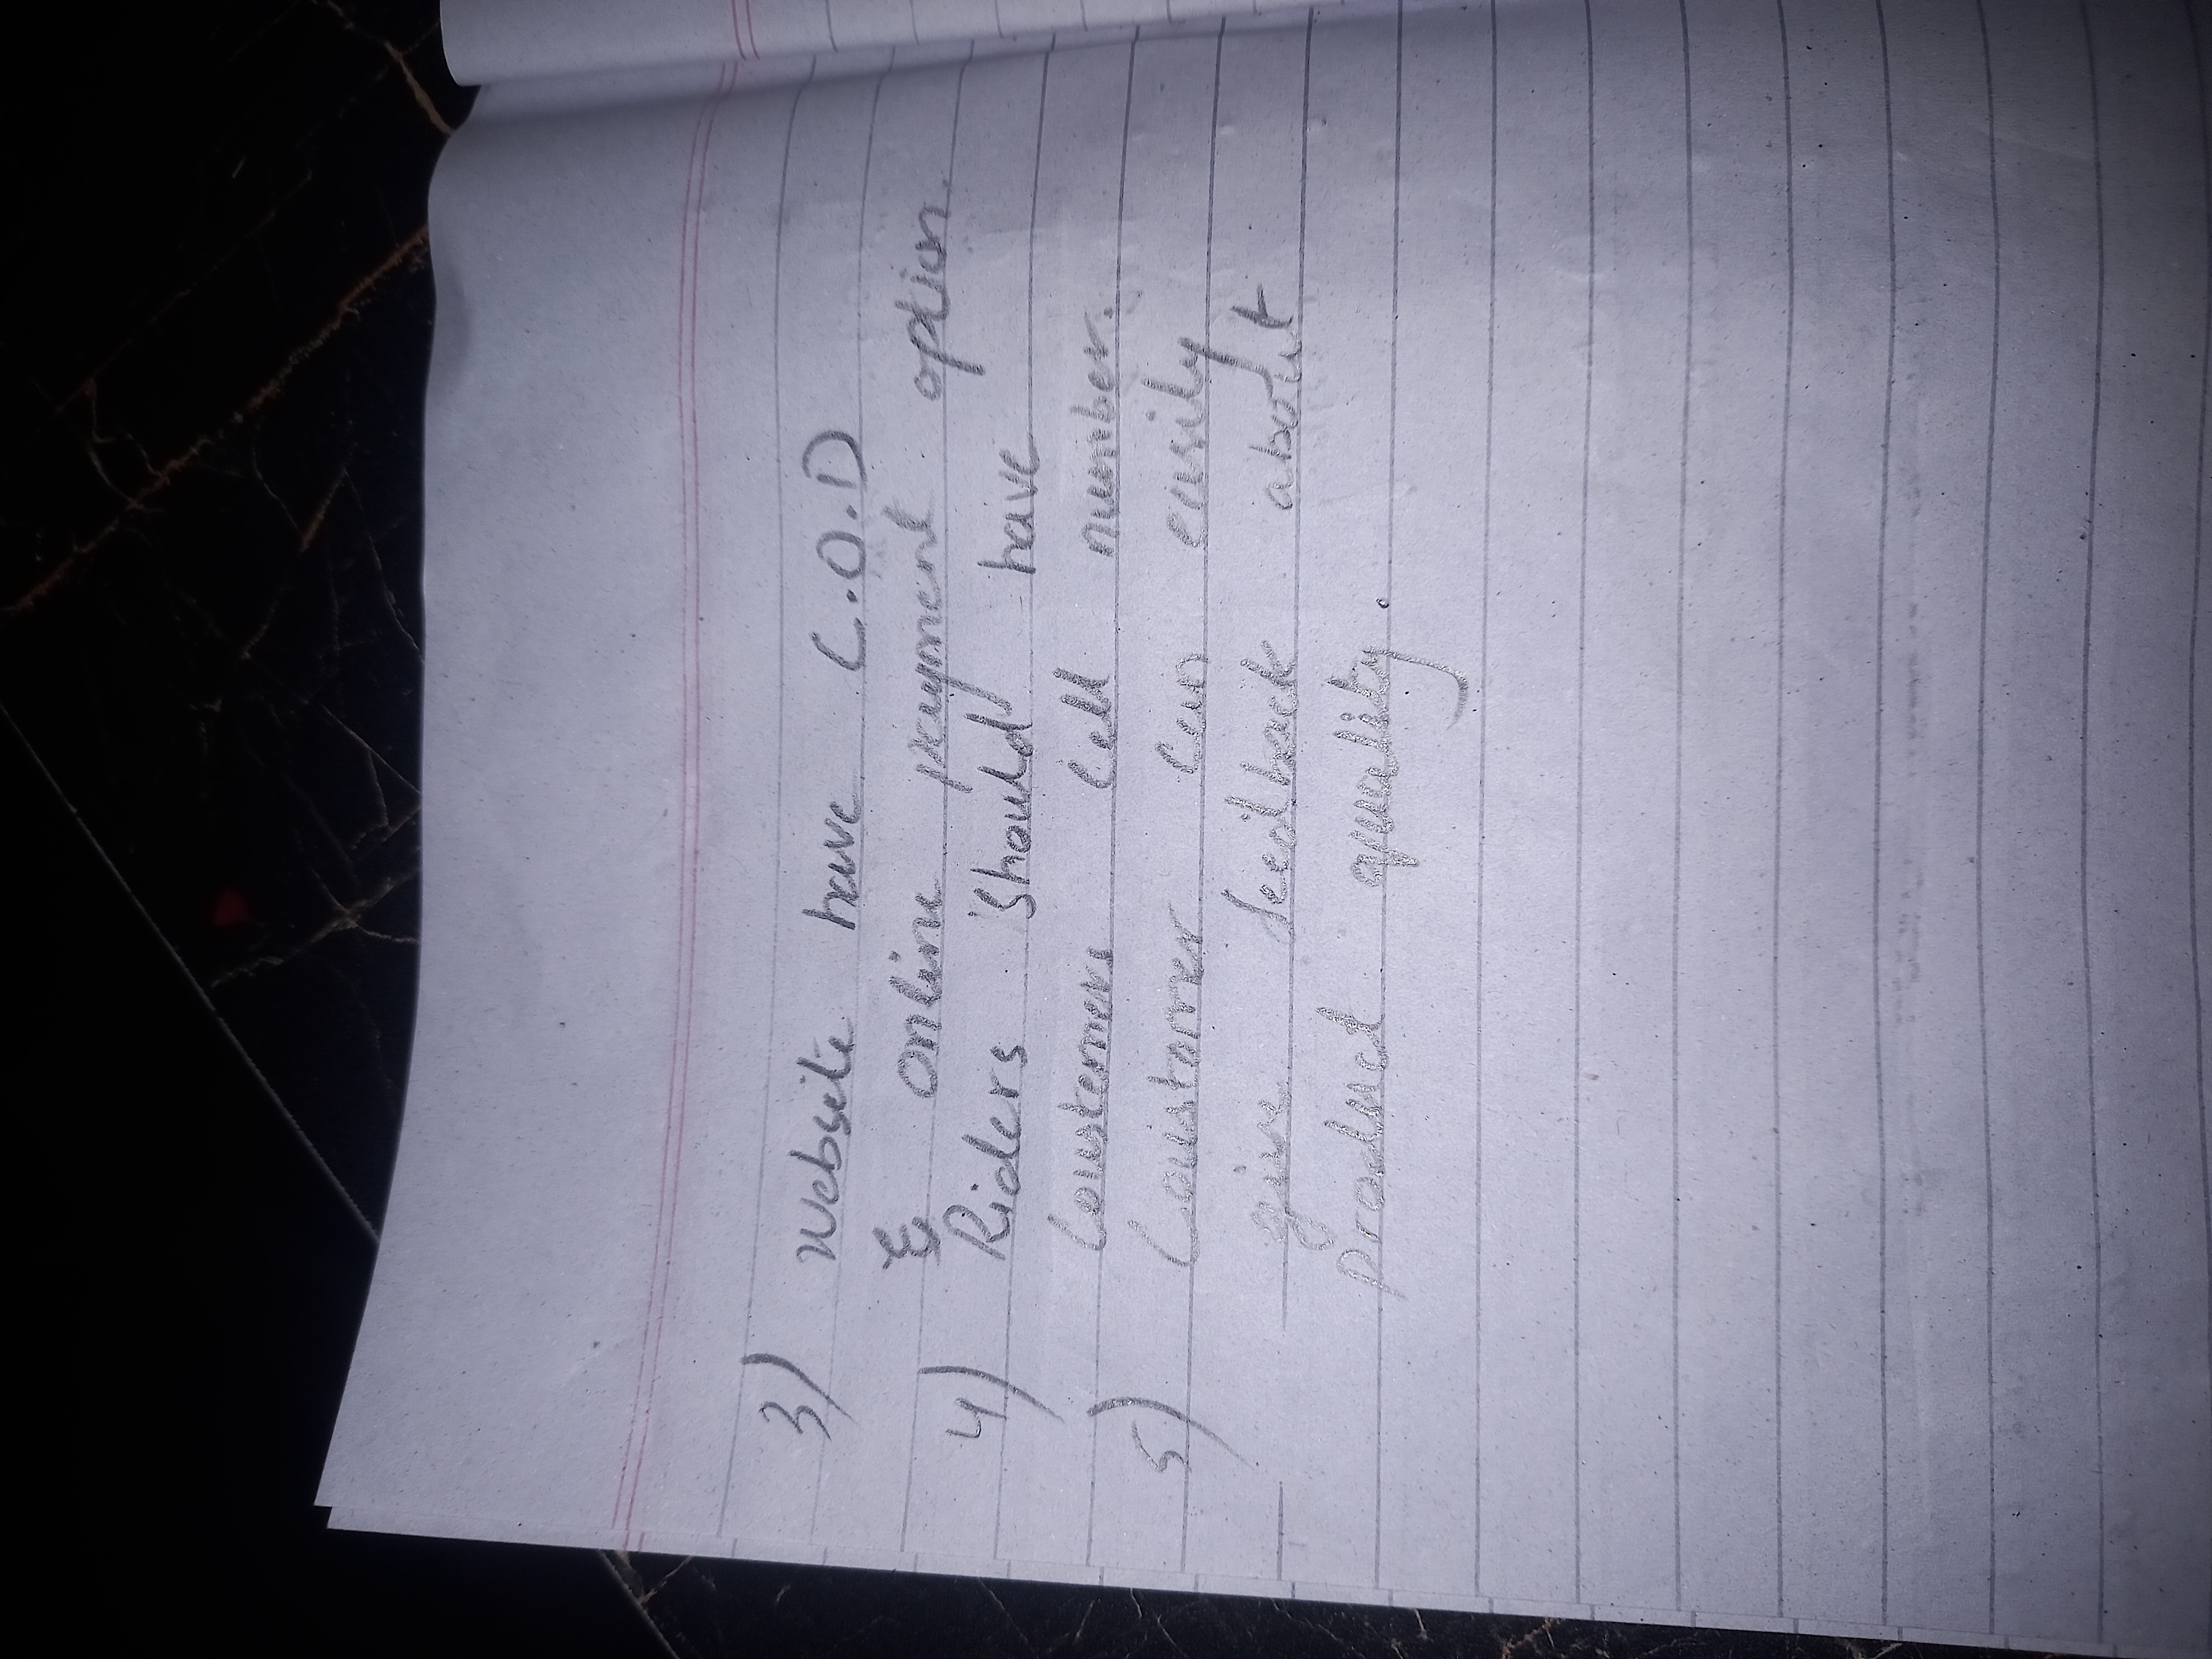 3) Website have C.O.D
& online payment option.
4) Riders should have
Coustemers Cell number.
5) Coustomer can easily
give feedback about
product quality.